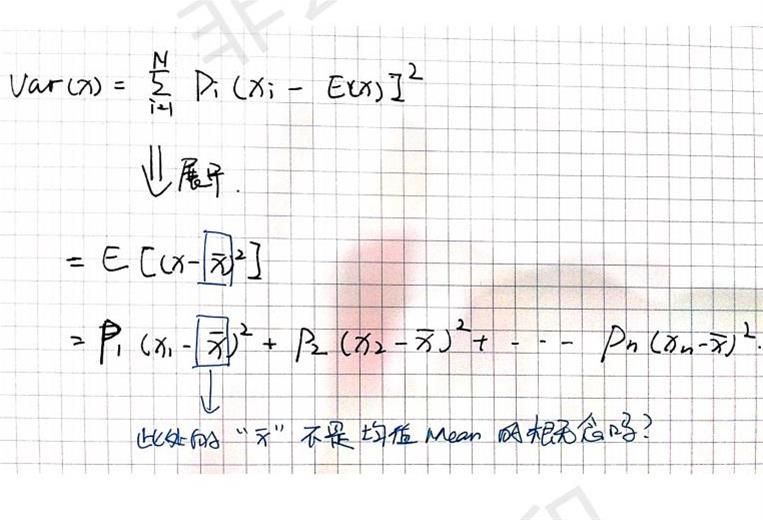 Var(x) = \sum_{i=1}^{N} P_i (x_i - E(x)]^2
⇓ 展开.
= E [(x - \bar{x})^2]
= P_1 (x_1 - \bar{x})^2 + P_2 (x_2 - \bar{x})^2 + - - - P_n (x_n - \bar{x})^2.
此处的 "\bar{x}" 不是均值 Mean 的概念吗?